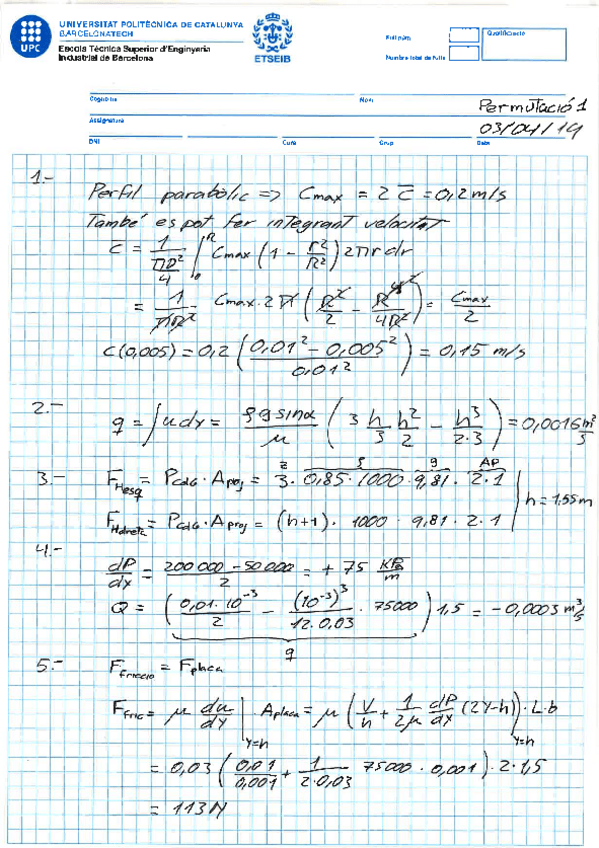 UNIVERSITAT POLITÈCNICA DE CATALUNYA
BARCELONATECH
UPC
Escola Tècnica Superior d'Enginyeria
Industrial de Barcelona
ETSEIB
Full núm.
Nombre total de fulls
Qualificació
Cognoms
Nom
Permutació 1
Assignatura
03/04/14
DNI
Curs
Grup
Data
1.-
Perfil parabòlic => Cmax = 2 c̅ = 0,2 m/s
També es pot fer integrant velocitat
c̅ = 1/(πD²/4) ∫₀ᴿ Cmax (1 - r²/R²) 2πr dr
= 1/(πR²) Cmax · 2π (R²/2 - R⁴/4R²) = Cmax/2
c(0,005) = 0,2 ((0,01² - 0,005²)/0,01²) = 0,15 m/s
2.-
q = ∫u dy = ρ g sinα/μ (3 h/3 h²/2 - h³/2·3) = 0,0016 m²/s
3.-
z ρ g AP
F_Hesq = P_CdG · A_proj = 3 · 0,85 · 1000 · 9,81 · 2·1
h = 1,55 m
F_Hdreta = P_CdG · A_proj = (h+1) · 1000 · 9,81 · 2·1
4.-
dP/dx = (200 000 - 50 000)/2 = + 75 KPa/m
Q = (0,01·10⁻³/2 - (10⁻³)³/12·0,03 · 75000) 1,5 = -0,0003 m³/s
q
5.-
F_fricció = F_placa
F_fric = μ du/dy |_{y=h} A_placa = μ (V/h + 1/2μ dP/dx (2y-h))_{y=h} · L·b
= 0,03 (0,01/0,001 + 1/2·0,03 75000 · 0,001) · 2·1,5
= 113 N